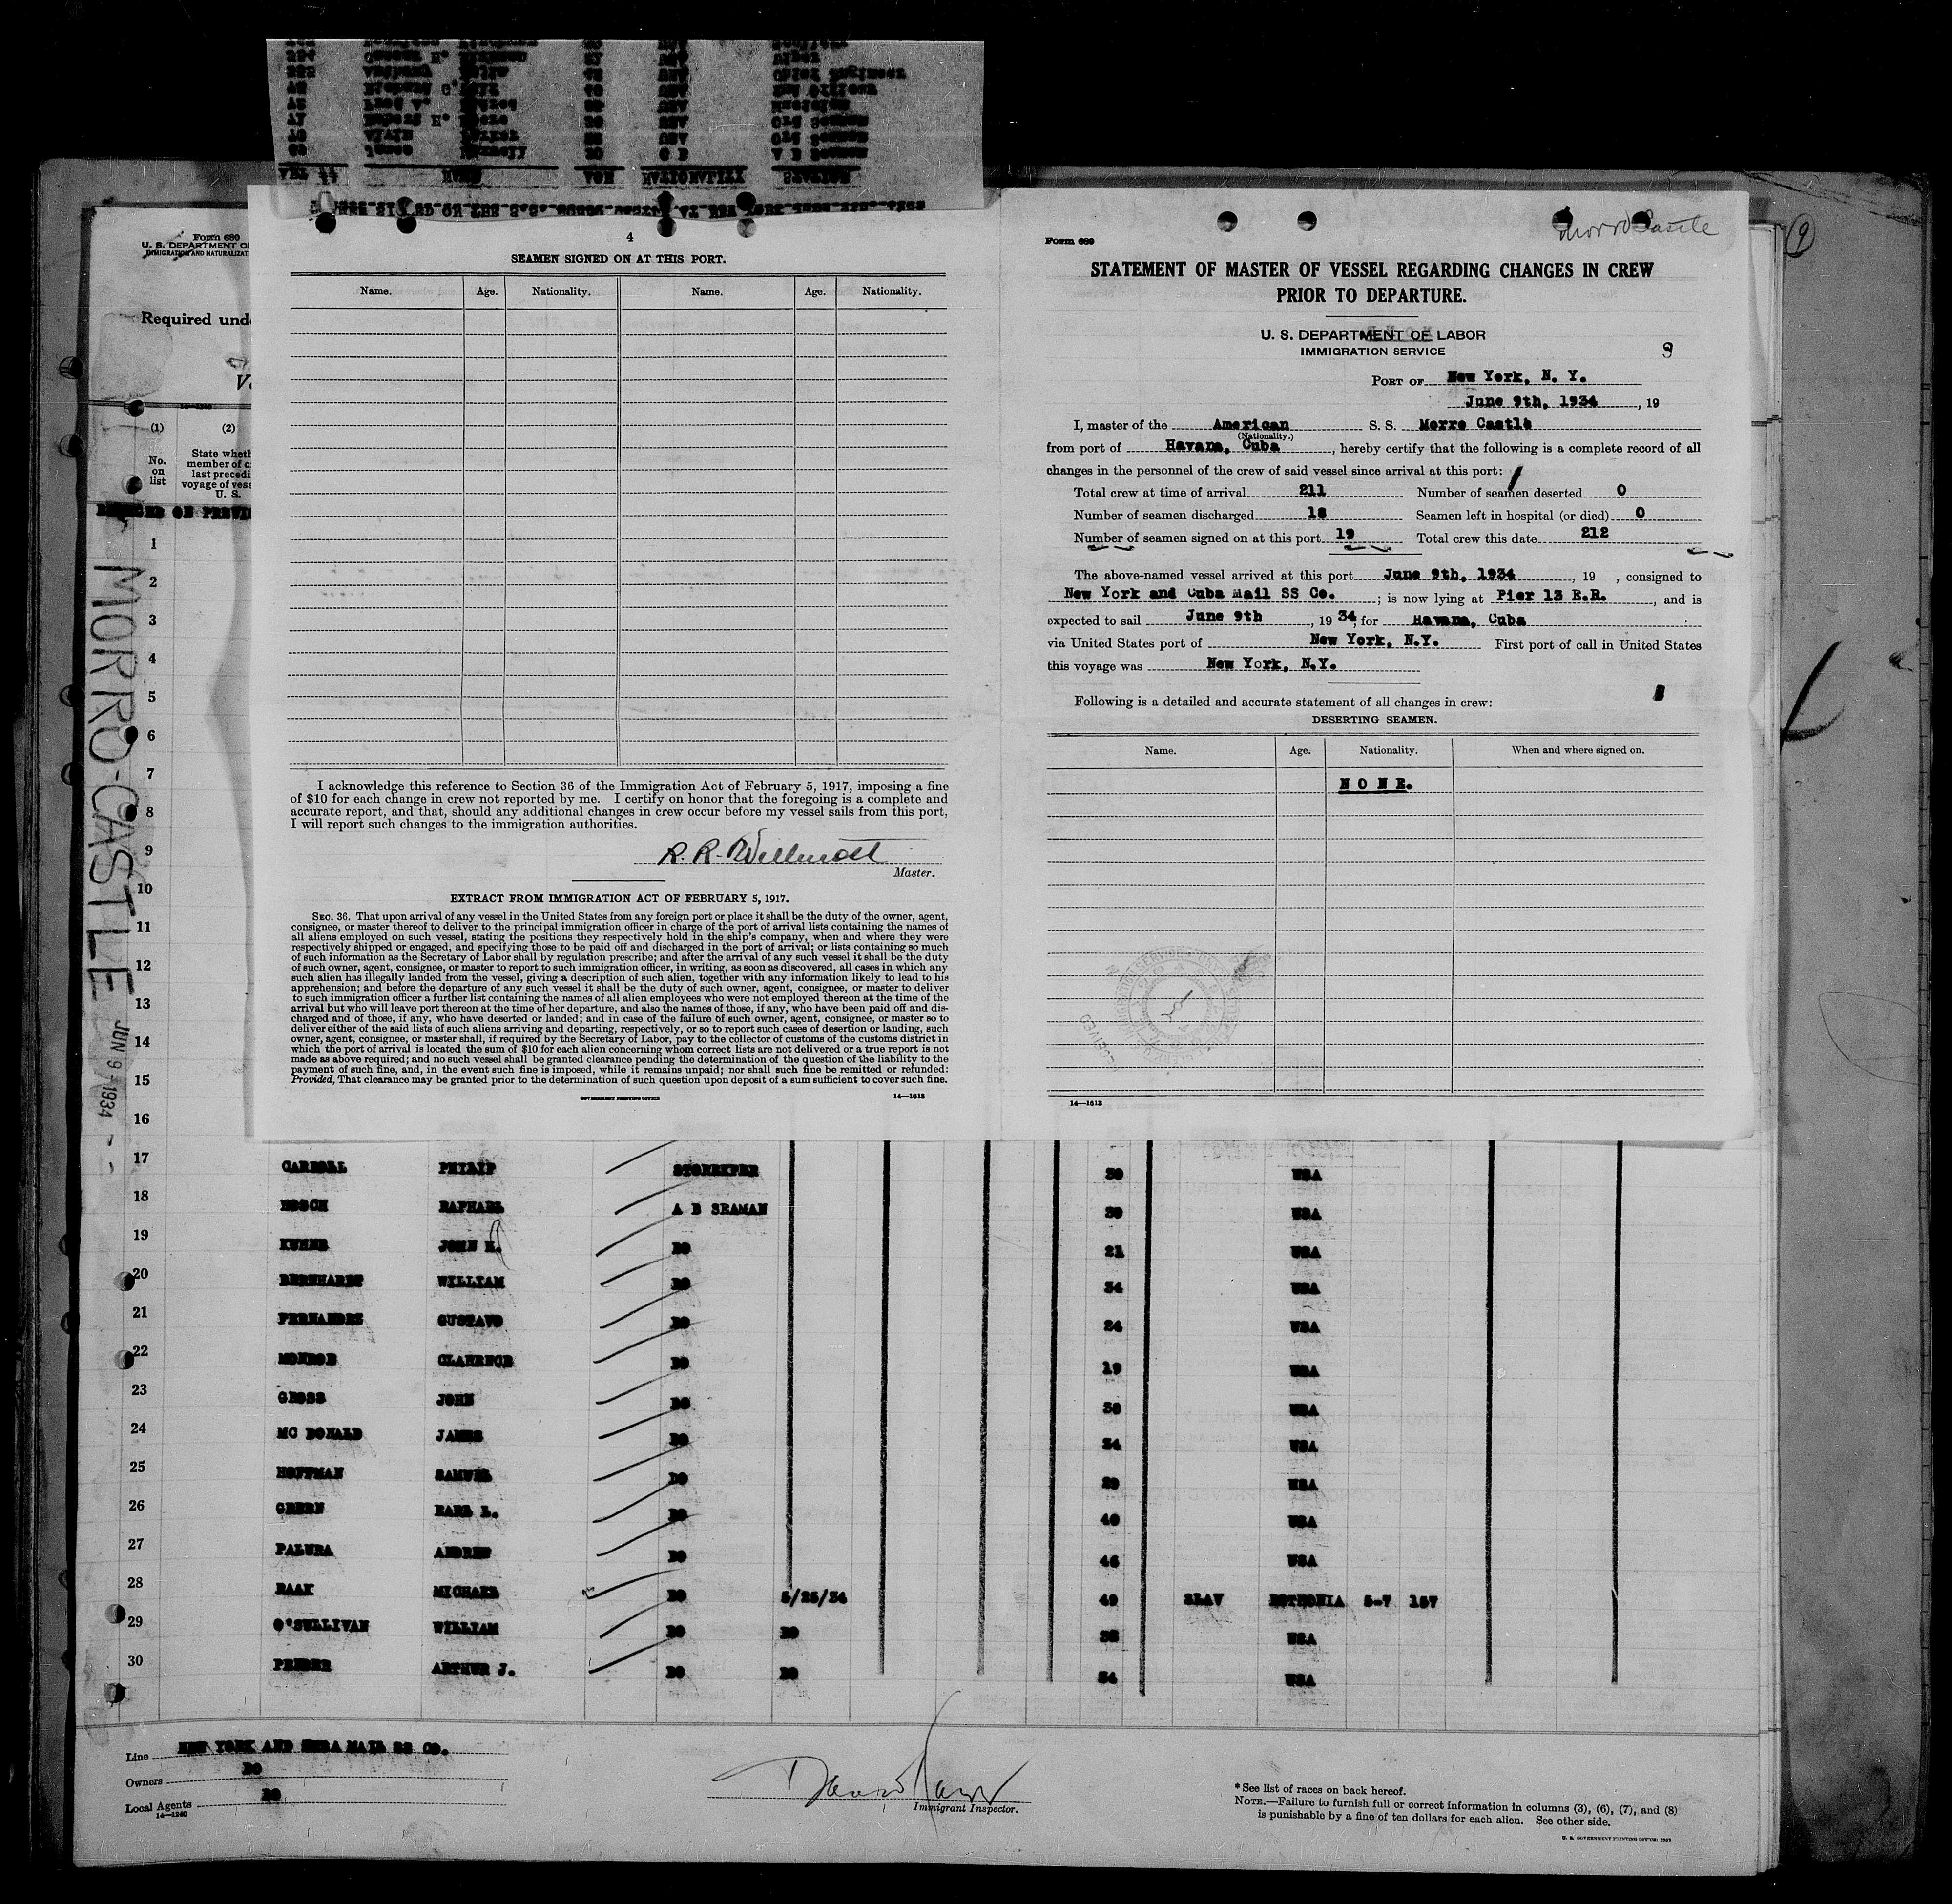 Morro Castle
9
Form 680
U. S. DEPARTMENT O
IMMIGRATION AND NATURALIZAT
Required und
14—1240
(1)
(2)
No.
on
list
State wheth
member of c
last precedi
voyage of vess
U. S.
MORRO-CASTLE
JUN 9 - 1934
4
SEAMEN SIGNED ON AT THIS PORT.
Name. Age. Nationality. Name. Age. Nationality.
I acknowledge this reference to Section 36 of the Immigration Act of February 5, 1917, imposing a fine
of $10 for each change in crew not reported by me. I certify on honor that the foregoing is a complete and
accurate report, and that, should any additional changes in crew occur before my vessel sails from this port,
I will report such changes to the immigration authorities.
R. R. Willmott
Master.
EXTRACT FROM IMMIGRATION ACT OF FEBRUARY 5, 1917.
SEC. 36. That upon arrival of any vessel in the United States from any foreign port or place it shall be the duty of the owner, agent,
consignee, or master thereof to deliver to the principal immigration officer in charge of the port of arrival lists containing the names of
all aliens employed on such vessel, stating the positions they respectively hold in the ship's company, when and where they were
respectively shipped or engaged, and specifying those to be paid off and discharged in the port of arrival; or lists containing so much
of such information as the Secretary of Labor shall by regulation prescribe; and after the arrival of any such vessel it shall be the duty
of such owner, agent, consignee, or master to report to such immigration officer, in writing, as soon as discovered, all cases in which any
such alien has illegally landed from the vessel, giving a description of such alien, together with any information likely to lead to his
apprehension; and before the departure of any such vessel it shall be the duty of such owner, agent, consignee, or master to deliver
to such immigration officer a further list containing the names of all alien employees who were not employed thereon at the time of the
arrival but who will leave port thereon at the time of her departure, and also the names of those, if any, who have been paid off and dis-
charged and of those, if any, who have deserted or landed; and in case of the failure of such owner, agent, consignee, or master so to
deliver either of the said lists of such aliens arriving and departing, respectively, or so to report such cases of desertion or landing, such
owner, agent, consignee, or master shall, if required by the Secretary of Labor, pay to the collector of customs of the customs district in
which the port of arrival is located the sum of $10 for each alien concerning whom correct lists are not delivered or a true report is not
made as above required; and no such vessel shall be granted clearance pending the determination of the question of the liability to the
payment of such fine, and, in the event such fine is imposed, while it remains unpaid; nor shall such fine be remitted or refunded:
Provided, That clearance may be granted prior to the determination of such question upon deposit of a sum sufficient to cover such fine.
GOVERNMENT PRINTING OFFICE 14—1613
Form 689
STATEMENT OF MASTER OF VESSEL REGARDING CHANGES IN CREW
PRIOR TO DEPARTURE.
U. S. DEPARTMENT OF LABOR
IMMIGRATION SERVICE
PORT OF New York, N. Y.
June 9th, 1934, 19
I, master of the American S. S. Morro Castle
(Nationality.)
from port of Havana, Cuba, hereby certify that the following is a complete record of all
changes in the personnel of the crew of said vessel since arrival at this port:
Total crew at time of arrival 211 Number of seamen deserted 0
Number of seamen discharged 18 Seamen left in hospital (or died) 0
Number of seamen signed on at this port 19 Total crew this date 212
The above-named vessel arrived at this port June 9th, 1934, 19 , consigned to
New York and Cuba Mail SS Co. ; is now lying at Pier 13 E.R. , and is
expected to sail June 9th , 19 34, for Havana, Cuba
via United States port of New York, N.Y. First port of call in United States
this voyage was New York, N.Y.
Following is a detailed and accurate statement of all changes in crew:
DESERTING SEAMEN.
Name. Age. Nationality. When and where signed on.
NONE.
14—1613
1
2
3
4
5
6
7
8
9
10
11
12
13
14
15
16
17 CARROLL PHILIP STOREKPER 30 USA
18 BOSCH RAPHAEL A B SEAMAN 30 USA
19 JOHN K. DO 21 USA
20 BERNHARDT WILLIAM DO 34 USA
21 FERNANDEZ GUSTAVO DO 24 USA
22 MONROE CLARENCE DO 19 USA
23 GROSS JOHN DO 38 USA
24 MC DONALD JAMES DO 34 USA
25 HOFFMAN SAMUEL DO 29 USA
26 GREEN EARL L. DO 40 USA
27 ANDREW DO 46 USA
28 RAAK MICHAEL DO 5/25/34 49 SLAV ESTHONIA 5-7 157
29 O'SULLIVAN WILLIAM DO DO 38 USA
30 ARTHUR J. DO DO 34 USA
Line NEW YORK AND CUBA MAIL SS CO.
Owners DO
Local Agents DO
14—1240
Immigrant Inspector.
*See list of races on back hereof.
NOTE.—Failure to furnish full or correct information in columns (3), (6), (7), and (8)
is punishable by a fine of ten dollars for each alien. See other side.